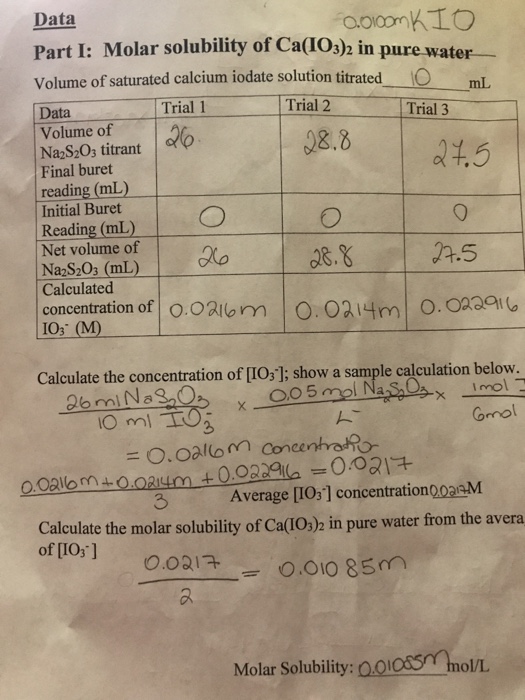 Data
0.0100m KIO
Part I: Molar solubility of Ca(IO3)2 in pure water
Volume of saturated calcium iodate solution titrated 10 mL
Data Trial 1 Trial 2 Trial 3
Volume of Na2S2O3 titrant Final buret reading (mL) 26. 28.8 27.5
Initial Buret Reading (mL) 0 0 0
Net volume of Na2S2O3 (mL) 26 28.8 27.5
Calculated concentration of IO3- (M) 0.0216m 0.0214m 0.022916
Calculate the concentration of [IO3-]; show a sample calculation below.
26 ml Na2S2O3 x 0.05 mol Na2S2O3 x 1mol
10 ml IO3- L 6mol
= 0.0216m concentration
0.0216m + 0.0214m + 0.022916 = 0.0217
3
Average [IO3-] concentration 0.0217M
Calculate the molar solubility of Ca(IO3)2 in pure water from the avera
of [IO3-]
0.0217 = 0.01085m
2
Molar Solubility: 0.01085m mol/L